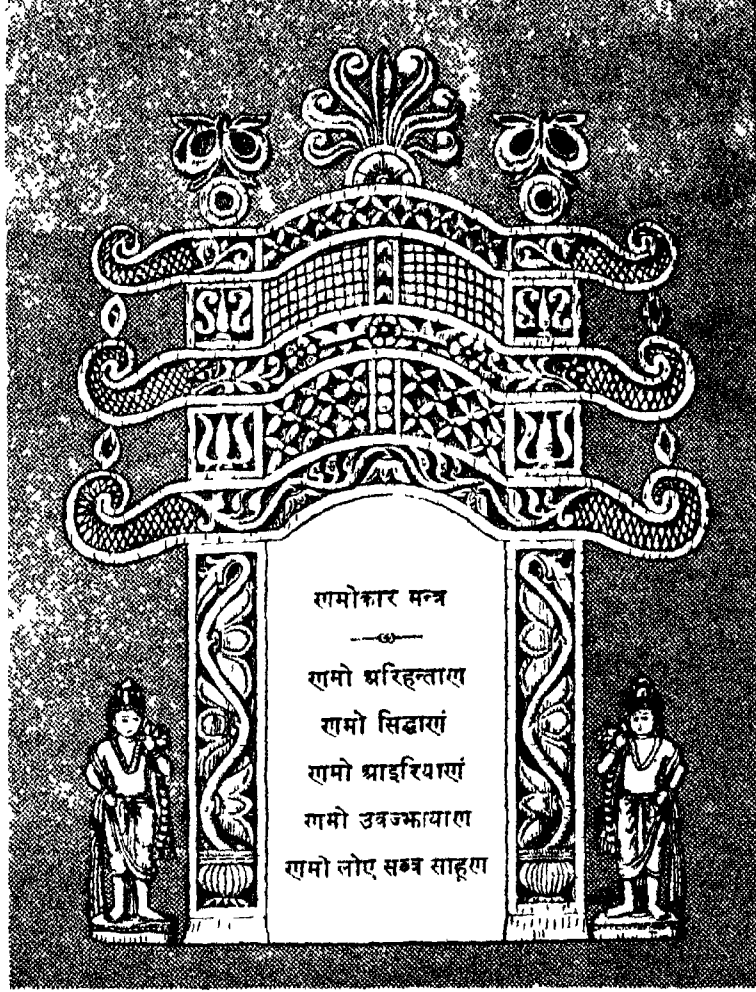 णमोकार मन्त्र
णमो अरिहन्ताण
णमो सिद्धाणं
णमो आइरियाणं
णमो उवज्झायाण
णमो लोए सव्व साहूण